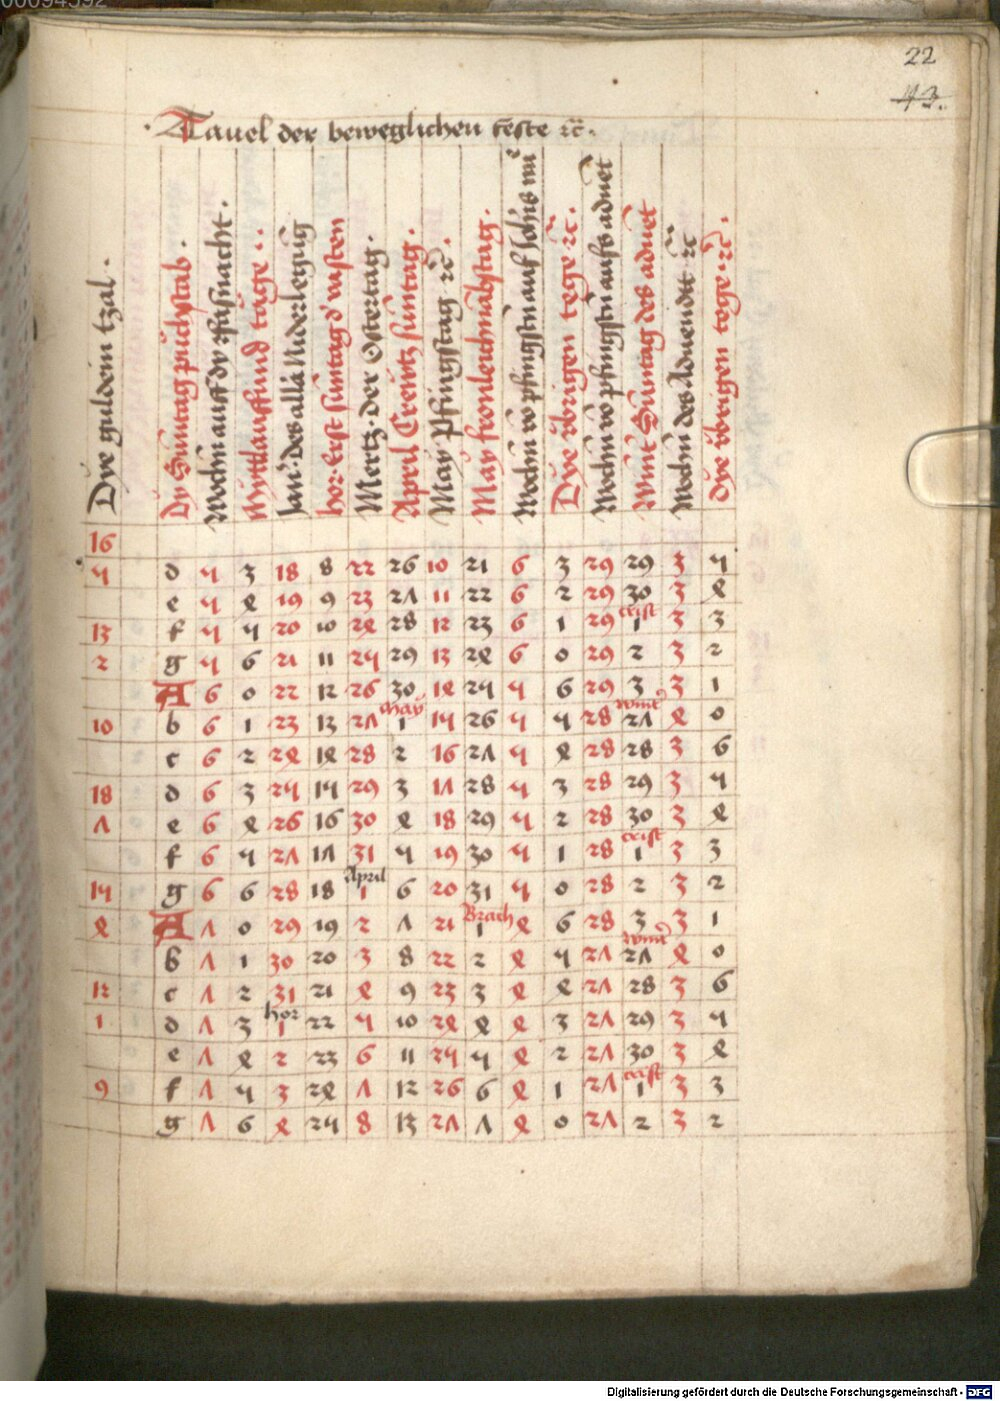 22
43.
Tauel der beweglichen feste ꝛc̄.
Dye guldein tzal.
Dy Suntag puchstab.
Wochn auff dy vasnacht.
vnd tage
Jan̄. des alla Niderlegug
hor. Erst suntag d' vasten
Mertz. der Ostertag.
April Creutz suntag.
May Pfingstag ꝛc̄.
May fronleichnabstag.
Wochn vō pfingstn auf Joh̄is
Dye vbrigen tege ꝛc̄.
Wochn vō pfingstn auffs aduet
Wint Suntag des aduet
Wochn des Aduendtt ꝛc̄
Dye vbrigen tege ꝛc̄.
16
5 d 5 3 18 8 22 26 10 21 6 3 29 29 3 5
e 5 4 19 9 23 27 11 22 6 2 29 30 3 4
13 f 5 5 20 10 24 28 12 23 6 1 29 crist 1 3 3
2 g 5 6 21 11 25 29 13 24 6 0 29 2 3 2
A 6 0 22 12 26 30 14 25 5 6 29 3 3 1
10 b 6 1 23 13 27 may 1 15 26 5 5 28 wint 27 4 0
c 6 2 24 14 28 2 16 27 5 4 28 28 3 6
18 d 6 3 25 15 29 3 17 28 5 3 28 29 3 5
7 e 6 4 26 16 30 4 18 29 5 2 28 30 3 4
f 6 5 27 17 31 5 19 30 5 1 28 crist 1 3 3
15 g 6 6 28 18 April 1 6 20 31 5 0 28 2 3 2
4 A 7 0 29 19 2 7 21 Brach 1 4 6 28 3 3 1
b 7 1 30 20 3 8 22 2 4 5 27 wint 27 4 0
12 c 7 2 31 21 4 9 23 3 4 4 27 28 3 6
1 d 7 3 hor 1 22 5 10 24 4 4 3 27 29 3 5
e 7 4 2 23 6 11 25 5 4 2 27 30 3 4
9 f 7 5 3 24 7 12 26 6 4 1 27 crist 1 3 3
g 7 6 4 25 8 13 27 7 4 0 27 2 3 2
Digitalisierung gefördert durch die Deutsche Forschungsgemeinschaft - DFG